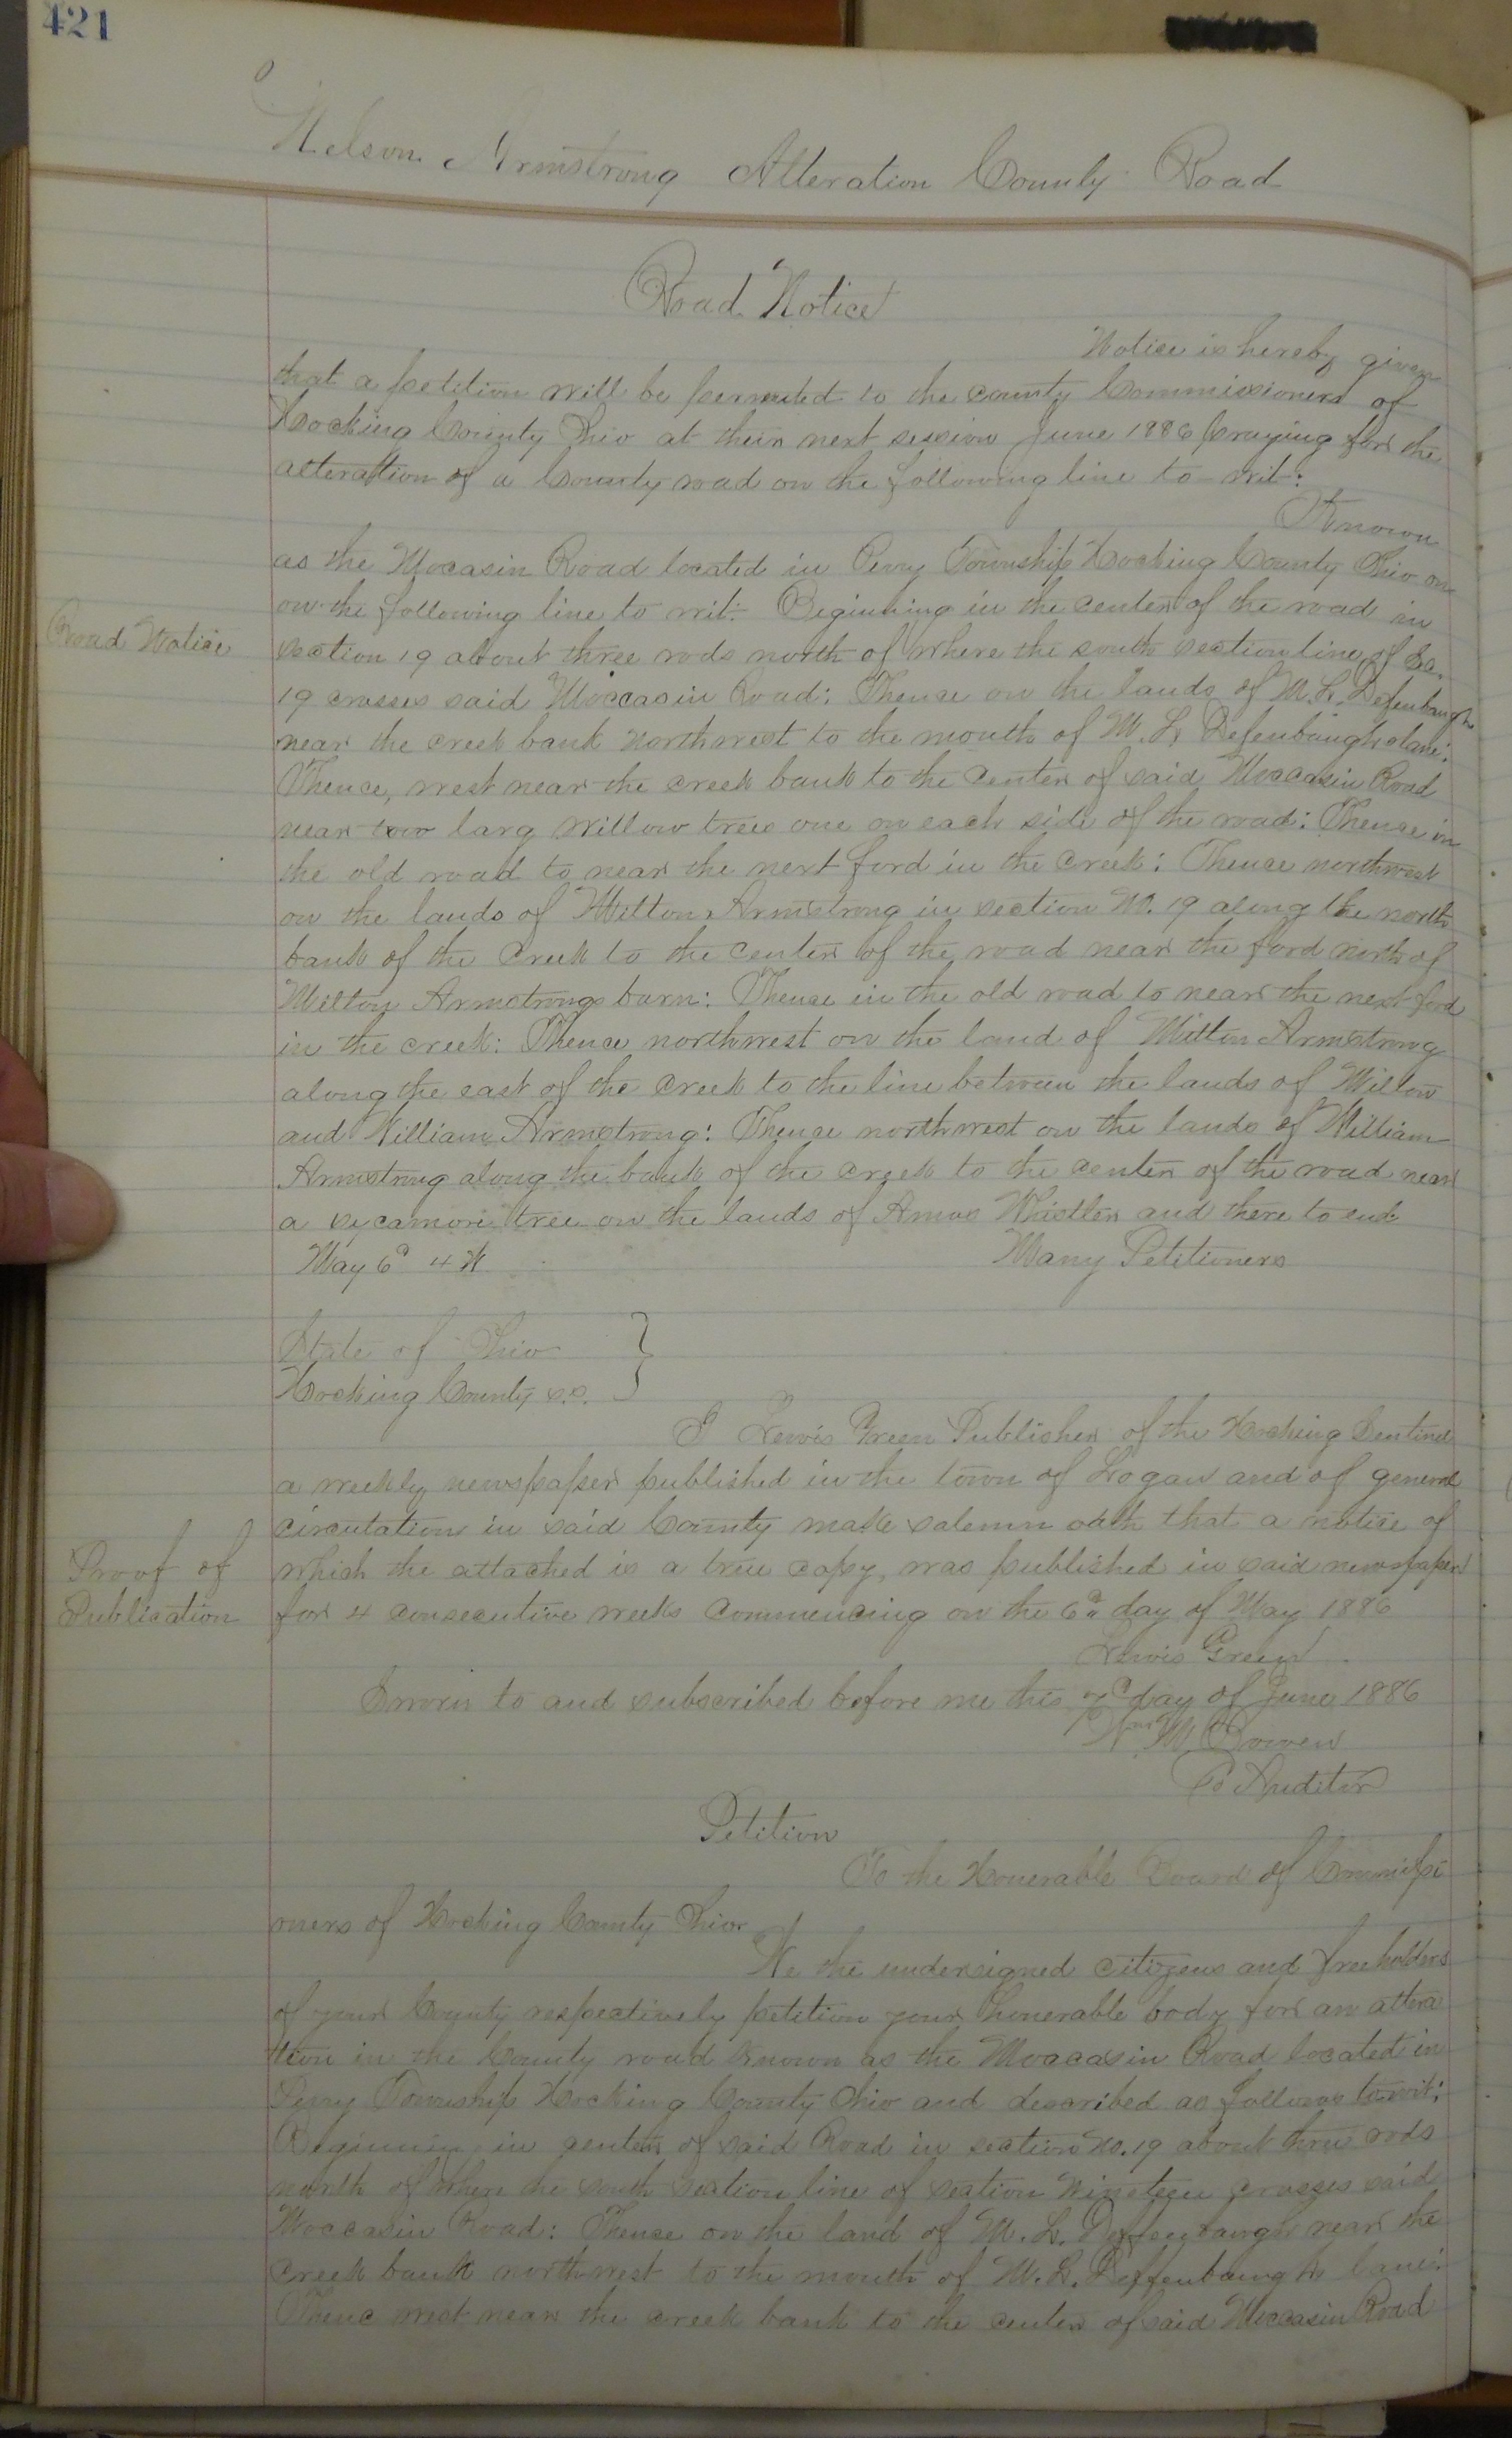 421
Nelson Armstrong Alteration County Road
Road Notice
Notice is hereby given
that a petition will be persented to the county Commissioners of
Hocking County Ohio at their next session June 1886 praying for the
alteration of a County road on the following line to-wit:
Known
as the Mocasin Road located in Perry Township Hocking County Ohio on
on the following line to wit: Beginning in the center of the road in
Road Notice
section 19 about three rods north of where the south section line of Sec.
19 crosses said Moccasin Road: Thence on the lands of M. L. Defenbaugh
near the creek bank northwest to the mouth of M. L. Defenbaughs lane:
Thence, west near the creek bank to the center of said Moccasin Road
near two larg willow trees one on each side of the road: Thence in
the old road to near the next ford in the creek: Thence northwest
on the lands of Milton Armstrong in section No. 19 along the north
bank of the Creek to the center of the road near the ford north of
Milton Armstrongs barn: Thence in the old road to near the next ford
in the creek: Thence northwest on the land of Milton Armstrong
along the east of the creek to the line between the lands of Milton
and William Armstrong: Thence northwest on the lands of William
Armstrong along the bank of the creek to the center of the road near
a sycamore tree on the lands of Amos and there to end
May 6d 4w
Many Petitioners
State of Ohio
Hocking County s.s. }
I Lewis Green Publisher of the Hocking Sentinel
a weekly newspaper published in the town of Logan and of general
circulation in said County make solemn oath that a notice of
Proof of
Publication
which the attached is a true copy, was published in said newspaper
for 4 consecutive weeks commencing on the 6d day of May 1886
Lewis Green
Sworn to and subscribed before me this 7d day of June 1886
Wm M Bowen
Co Auditor
Petition
To the Honerable Board of Commissi
oners of Hocking County Ohio.
We the undersigned citizens and freeholders
of your County respectively petition your honerable body for an altera
tion in the County road known as the Moccasin Road located in
Perry Township Hocking County Ohio and described as follows to wit:
Beginning in center of said Road in section No. 19 about three rods
north of where the south section line of section Nineteen crosses said
Moccasin Road: Thence on the land of M. L. Deffenbaugh near the
creek bank northwest to the mouth of M. L. Deffenbaughs lane:
Thenc west near the creek bank to the center of said Moccasin Road